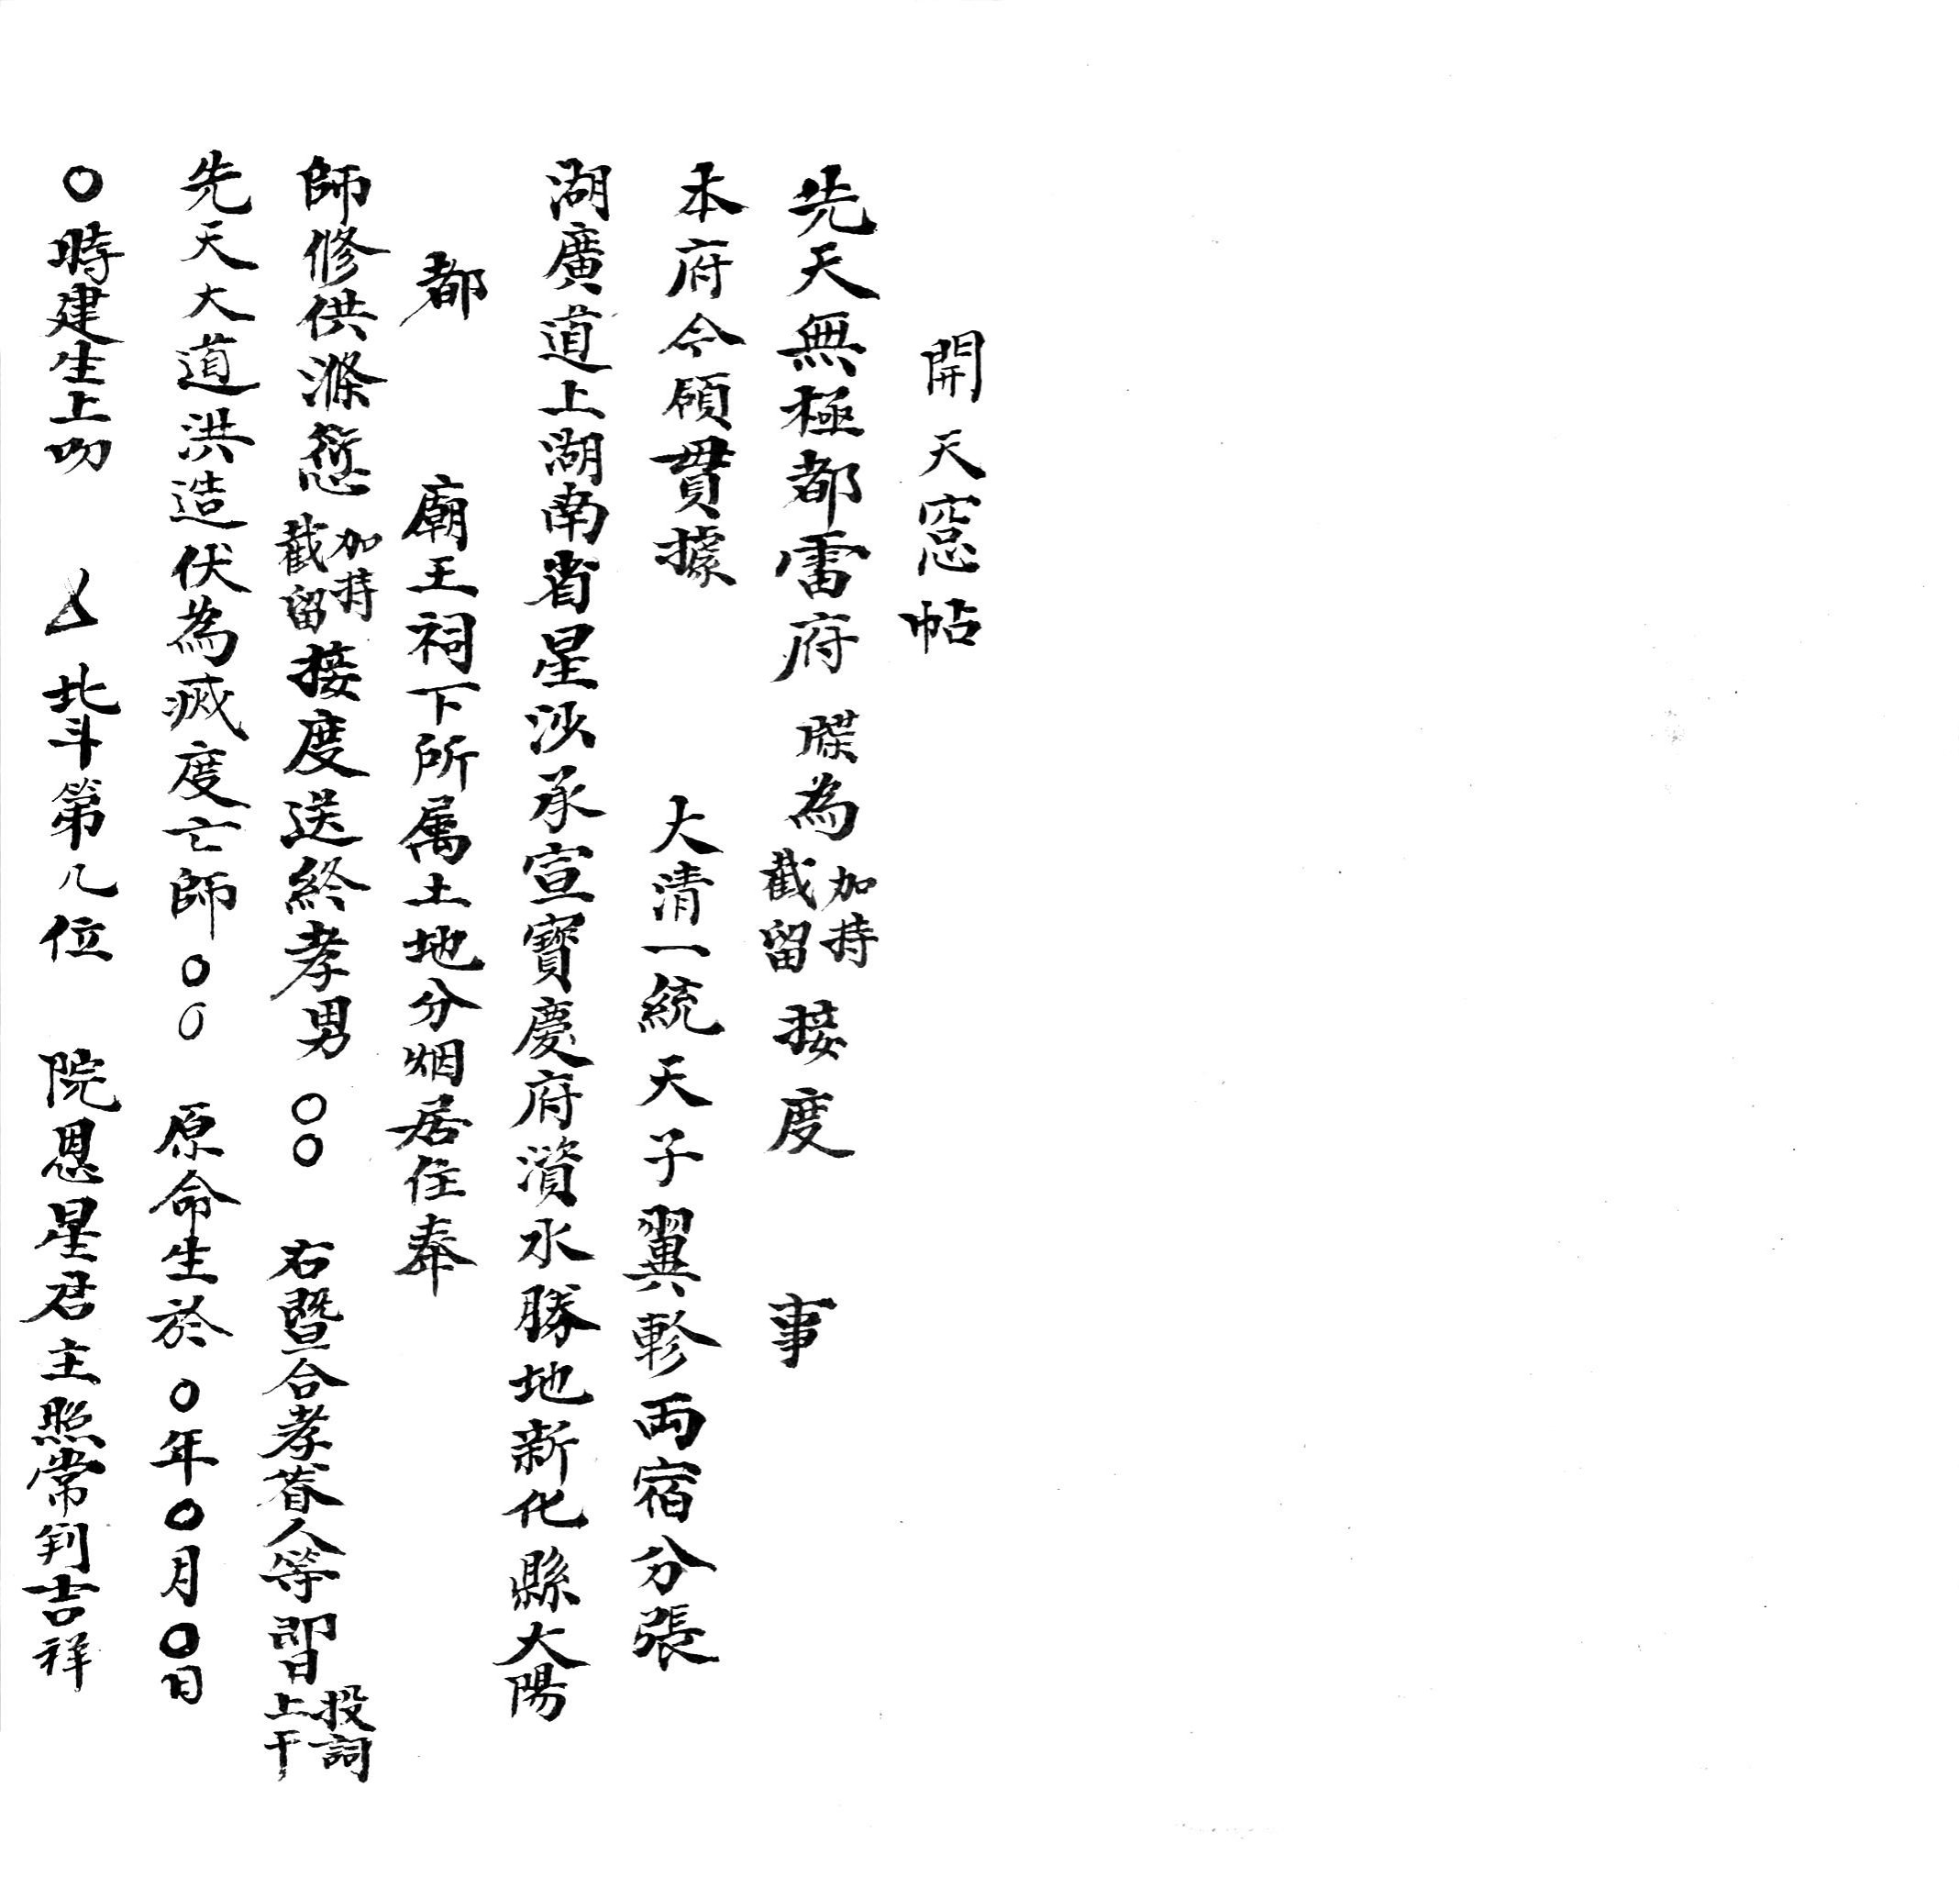 開天窓帖
先天無極都雷府 牒為加持截留接度 事
本府今領貫據 大清一統天子翼軫両宿分張
湖廣道上湖南省星沙承宣寶慶府濱水勝地新化縣大陽
都 廟王祠下所属土地分烟居住奉
師修供滌愆加持截留接度送終孝男〇〇 右暨合孝眷人等即日投詞上干
先天大道洪造伏為滅度亡師〇〇 原命生於〇年〇月〇日
〇時建生上叨 厶 北斗第几位 院恩星君主照常判吉祥